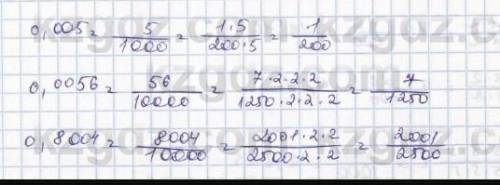 0,005 = 5/1000 = 1·5/200·5 = 1/200
0,0056 = 56/10000 = 7·2·2·2/1250·2·2·2 = 7/1250
0,8004 = 8004/10000 = 2001·2·2/2500·2·2 = 2001/2500